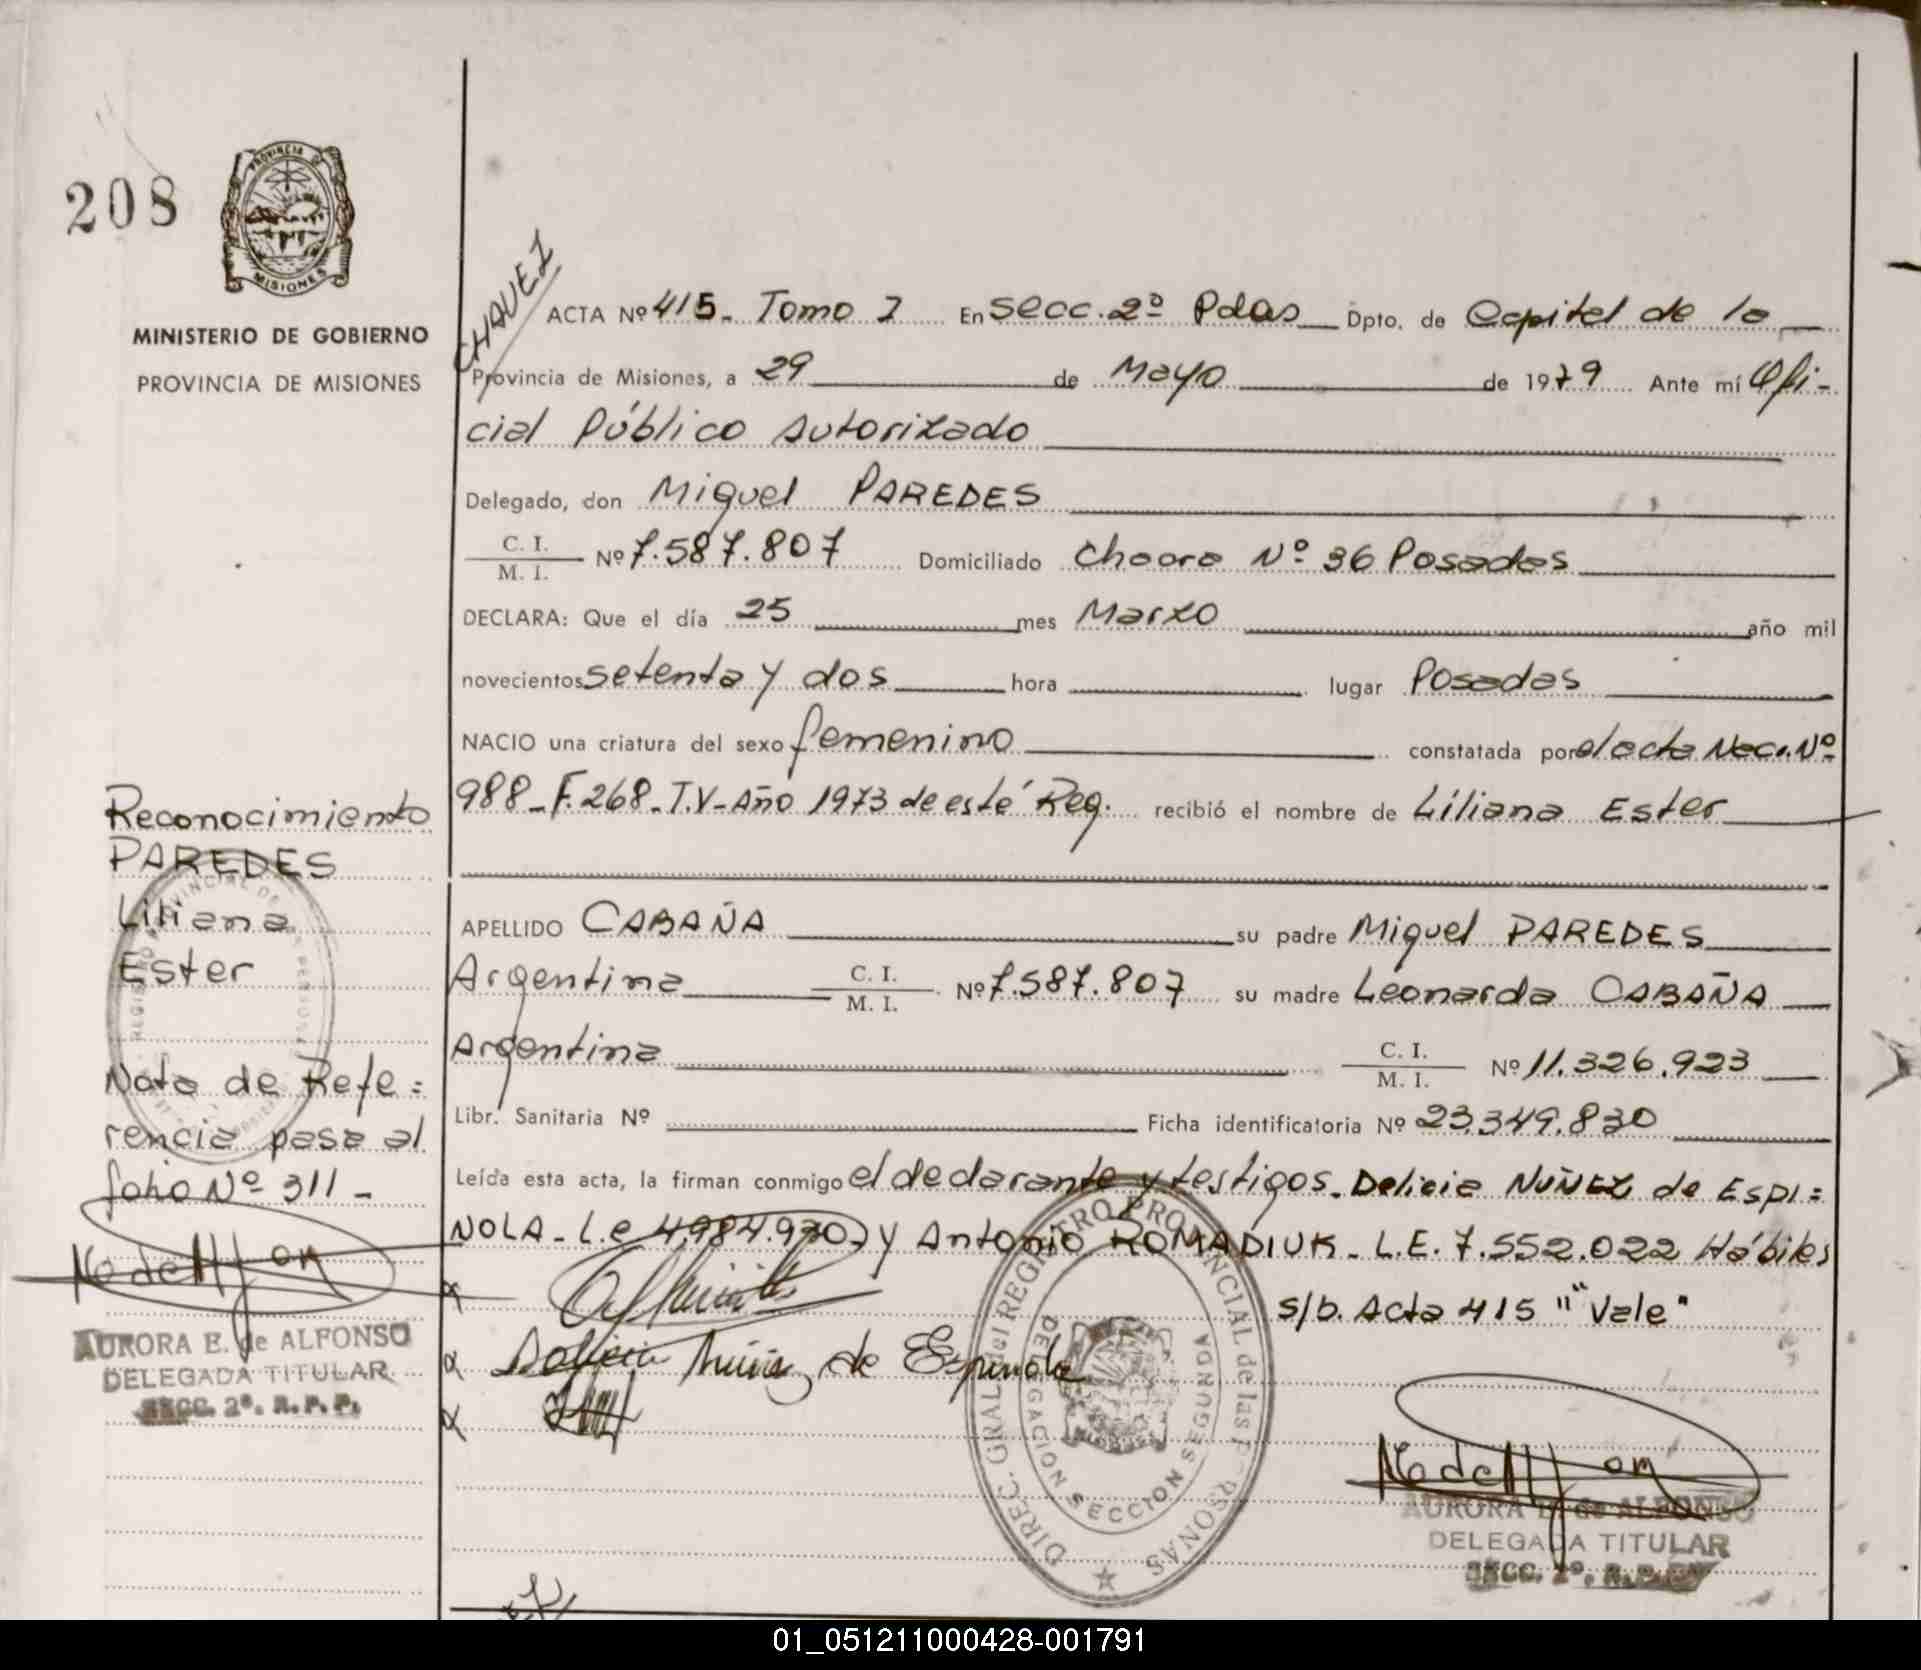 208
PROVINCIA DE
MISIONES
MINISTERIO DE GOBIERNO
PROVINCIA DE MISIONES
CHAVEZ
ACTA Nº 415_ Tomo I En Secc. 2º Pdas Dpto. de Capital de la
Provincia de Misiones, a 29 de Mayo de 1979 Ante mí Ofi-
cial Público Autorizado
Delegado, don Miguel PAREDES
C. I.
M. I.
Nº 7.587.807 Domiciliado Chacra Nº 36 Posadas
DECLARA: Que el día 25 mes Marzo año mil
novecientos setenta y dos hora lugar Posadas
NACIO una criatura del sexo femenino constatada por el acta Nac. Nº
988_F.268_T.V_Año 1973 de esté Reg. recibió el nombre de Liliana Ester
APELLIDO CABAÑA su padre Miguel PAREDES
Argentina C. I.
M. I.
Nº 7.587.807 su madre Leonarda CABAÑA
Argentina C. I.
M. I.
Nº 11.326.923
Libr. Sanitaria Nº Ficha identificatoria Nº 23.349.830
Leída esta acta, la firman conmigo el declarante y testigos_ Delicia NUÑEZ de ESPI=
NOLA_ L.e 4.984.930_ y Antonio ROMADIUK_ L.E. 7.552.022 Hábiles
s/b. Acta 415 "" Vale"
Delicia Nuñez de Espinola
DIREC. GRAL del REGISTRO PROVINCIAL de las PERSONAS
DELEGACION SECCION SEGUNDA
AURORA E. de ALFONSO
DELEGADA TITULAR
SECC. 2º. R. P. P.
Reconocimiento
PAREDES
Liliana
Ester
Nota de Refe=
rencia pasa al
folio Nº 311_
AURORA E. de ALFONSO
DELEGADA TITULAR
SECC. 2º. R. P. P.
01_051211000428-001791